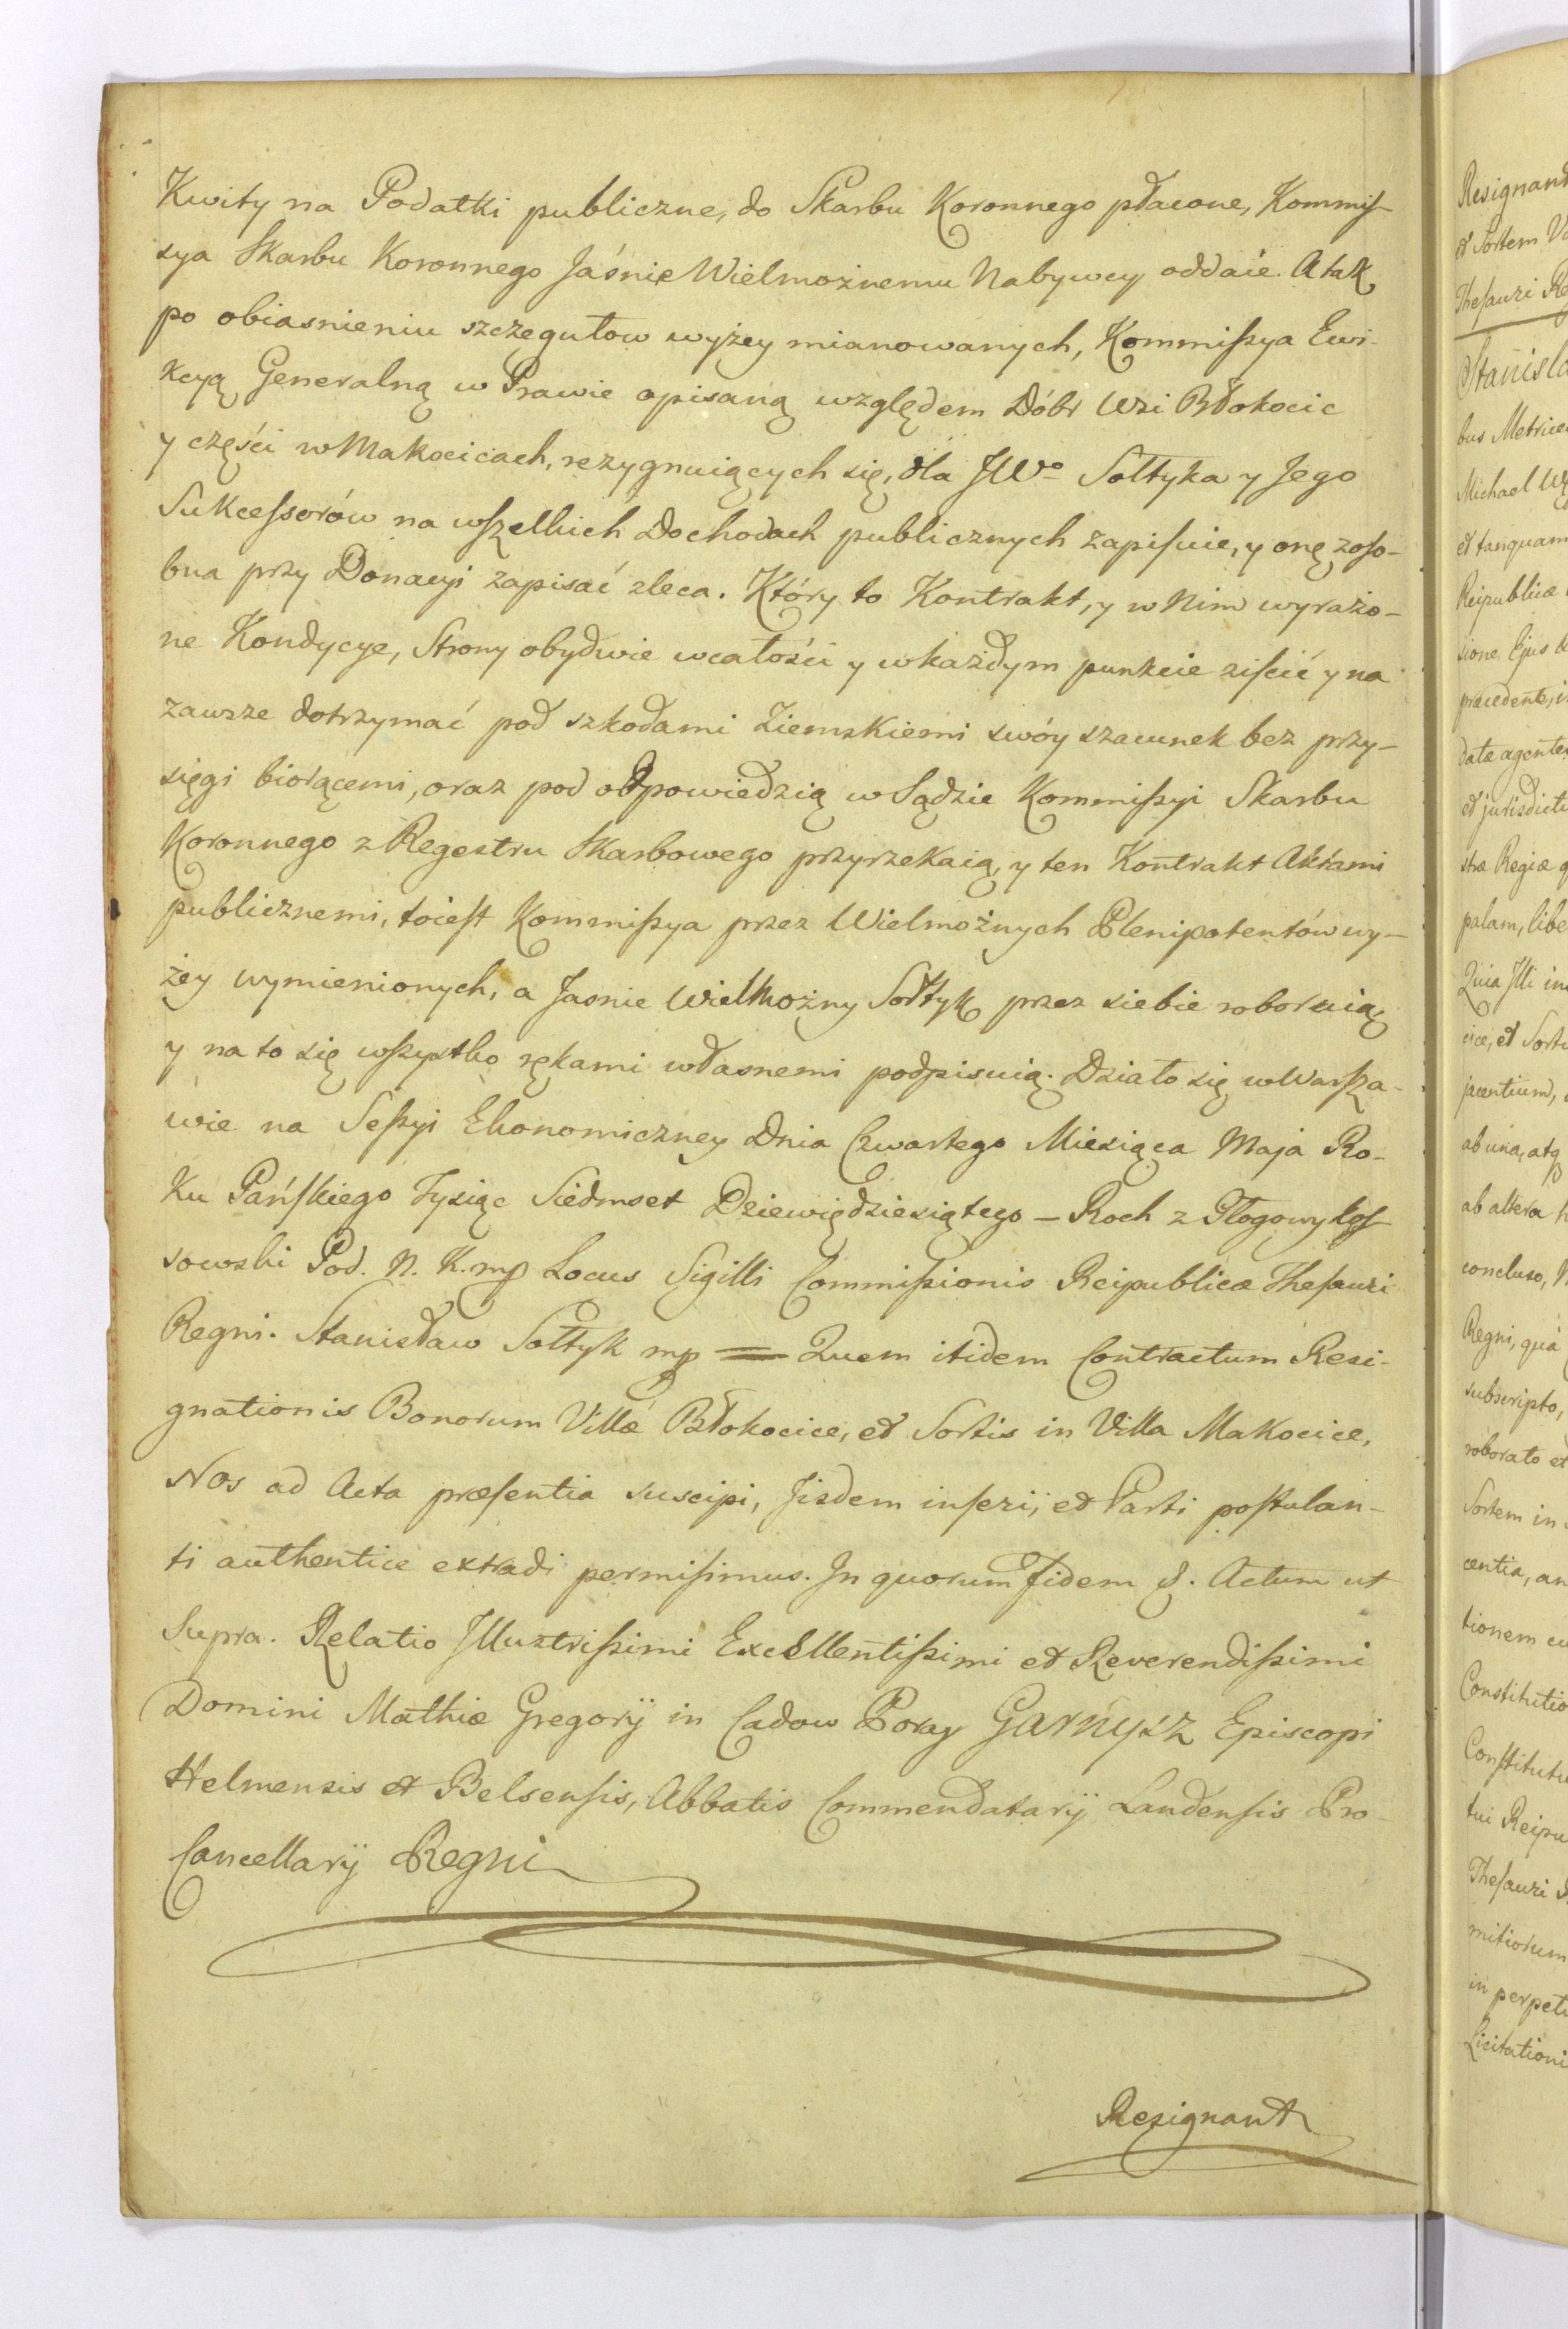 Kwity na Podatki publiczne, do Skarbu Koronnego płacone, Kommis-
sya Skarbu Koronnego Jaśnie Wielmożnemu Nabywcy oddaie. A tak
po obiasnieniu szczegułow wyżey mianowanych, Kommissya Ewi-
kcyą Generalną w Prawie opisaną względem Dóbr Wsi Błokocic
y części w Makocicach, rezygnuiących się, dla JWo Sołtyka y Jego
Sukcessorów na wszelkich Dochodach publicznych zapisuie, y onę zoso-
bna przy Donacyi zapisać zleca. Który to Kontrakt, y w Nim wyrażo-
ne Kondycye, Strony obydwie wcałości y w każdym punkcie ziścić y na
zawsze dotrzymać pod szkodami Ziemskiemi swóy szacunek bez przy-
sięgi biorącemi, oraz pod odpowiedzią w Sądzie Kommissyi Skarbu
Koronnego z Regestru Skarbowego przyrzekaią, y ten Kontrakt Aktami
publicznemi, toiest Kommissya przez Wielmożnych Plenipotentów wy-
żey wymienionych, a Jasnie Wielmożny Sołtyk przez siebie roboruią
y na to się wszystko rękami własnemi podpisuią. Działo się w Warsza-
wie na Sessyi Ekonomiczney Dnia Czwartego Miesiąca Maja Ro-
ku Pańskiego Tysiąc Siedmset Dziewiędziesiątego – Roch z Głogowy Kos-
sowski Pod. N. K. mp Locus Sigilli Commissionis Reipublicæ Thesauri
Regni. Stanisław Sołtyk mp = Quem itidem Contractum Resi-
gnationis Bonorum Villæ Błokocice, et Sortis in Villa Makocice,
Nos ad Acta præsentia suscipi, Jisdem inseri, et Parti postulan-
ti authentice extradi permisimus. In quorum fidem &. Actum ut
Supra. Relatio Jllustrissimi Excellentissimi et Reverendissimi
Domini Mathiæ Gregorÿ in Cadow Poray Garnysz Episcopi
Helmensis et Belsensis, Abbatis Commendatarÿ Landensis Pro-
Cancellarÿ Regni
Resignant
Resignant
et Sortem
Thesauri
bus
Michael
et tanquam
Reipublicæ
sione Ejus
præcedente,
datæ
stræ Regiæ
palam,
Quia Jlli
et
jacentium,
ab una,
ab altera
concluso,
Regni, quà
subscripto,
roborato et
Sortem in
centia,
tionem
tui
Thesauri
in